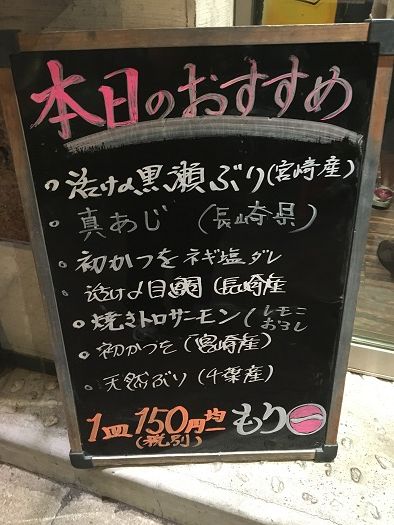 本日のおすすめ
○活〆黒瀬ぶり(宮崎産)
・真あじ (長崎県)
・初かつを ネギ塩ダレ
・活〆目鯛(長崎産
・焼きトロサーモン(レモンおろし
・初かつを(宮崎産)
・天然ぶり(千葉産)
1皿150円均一 もり一
(税別)